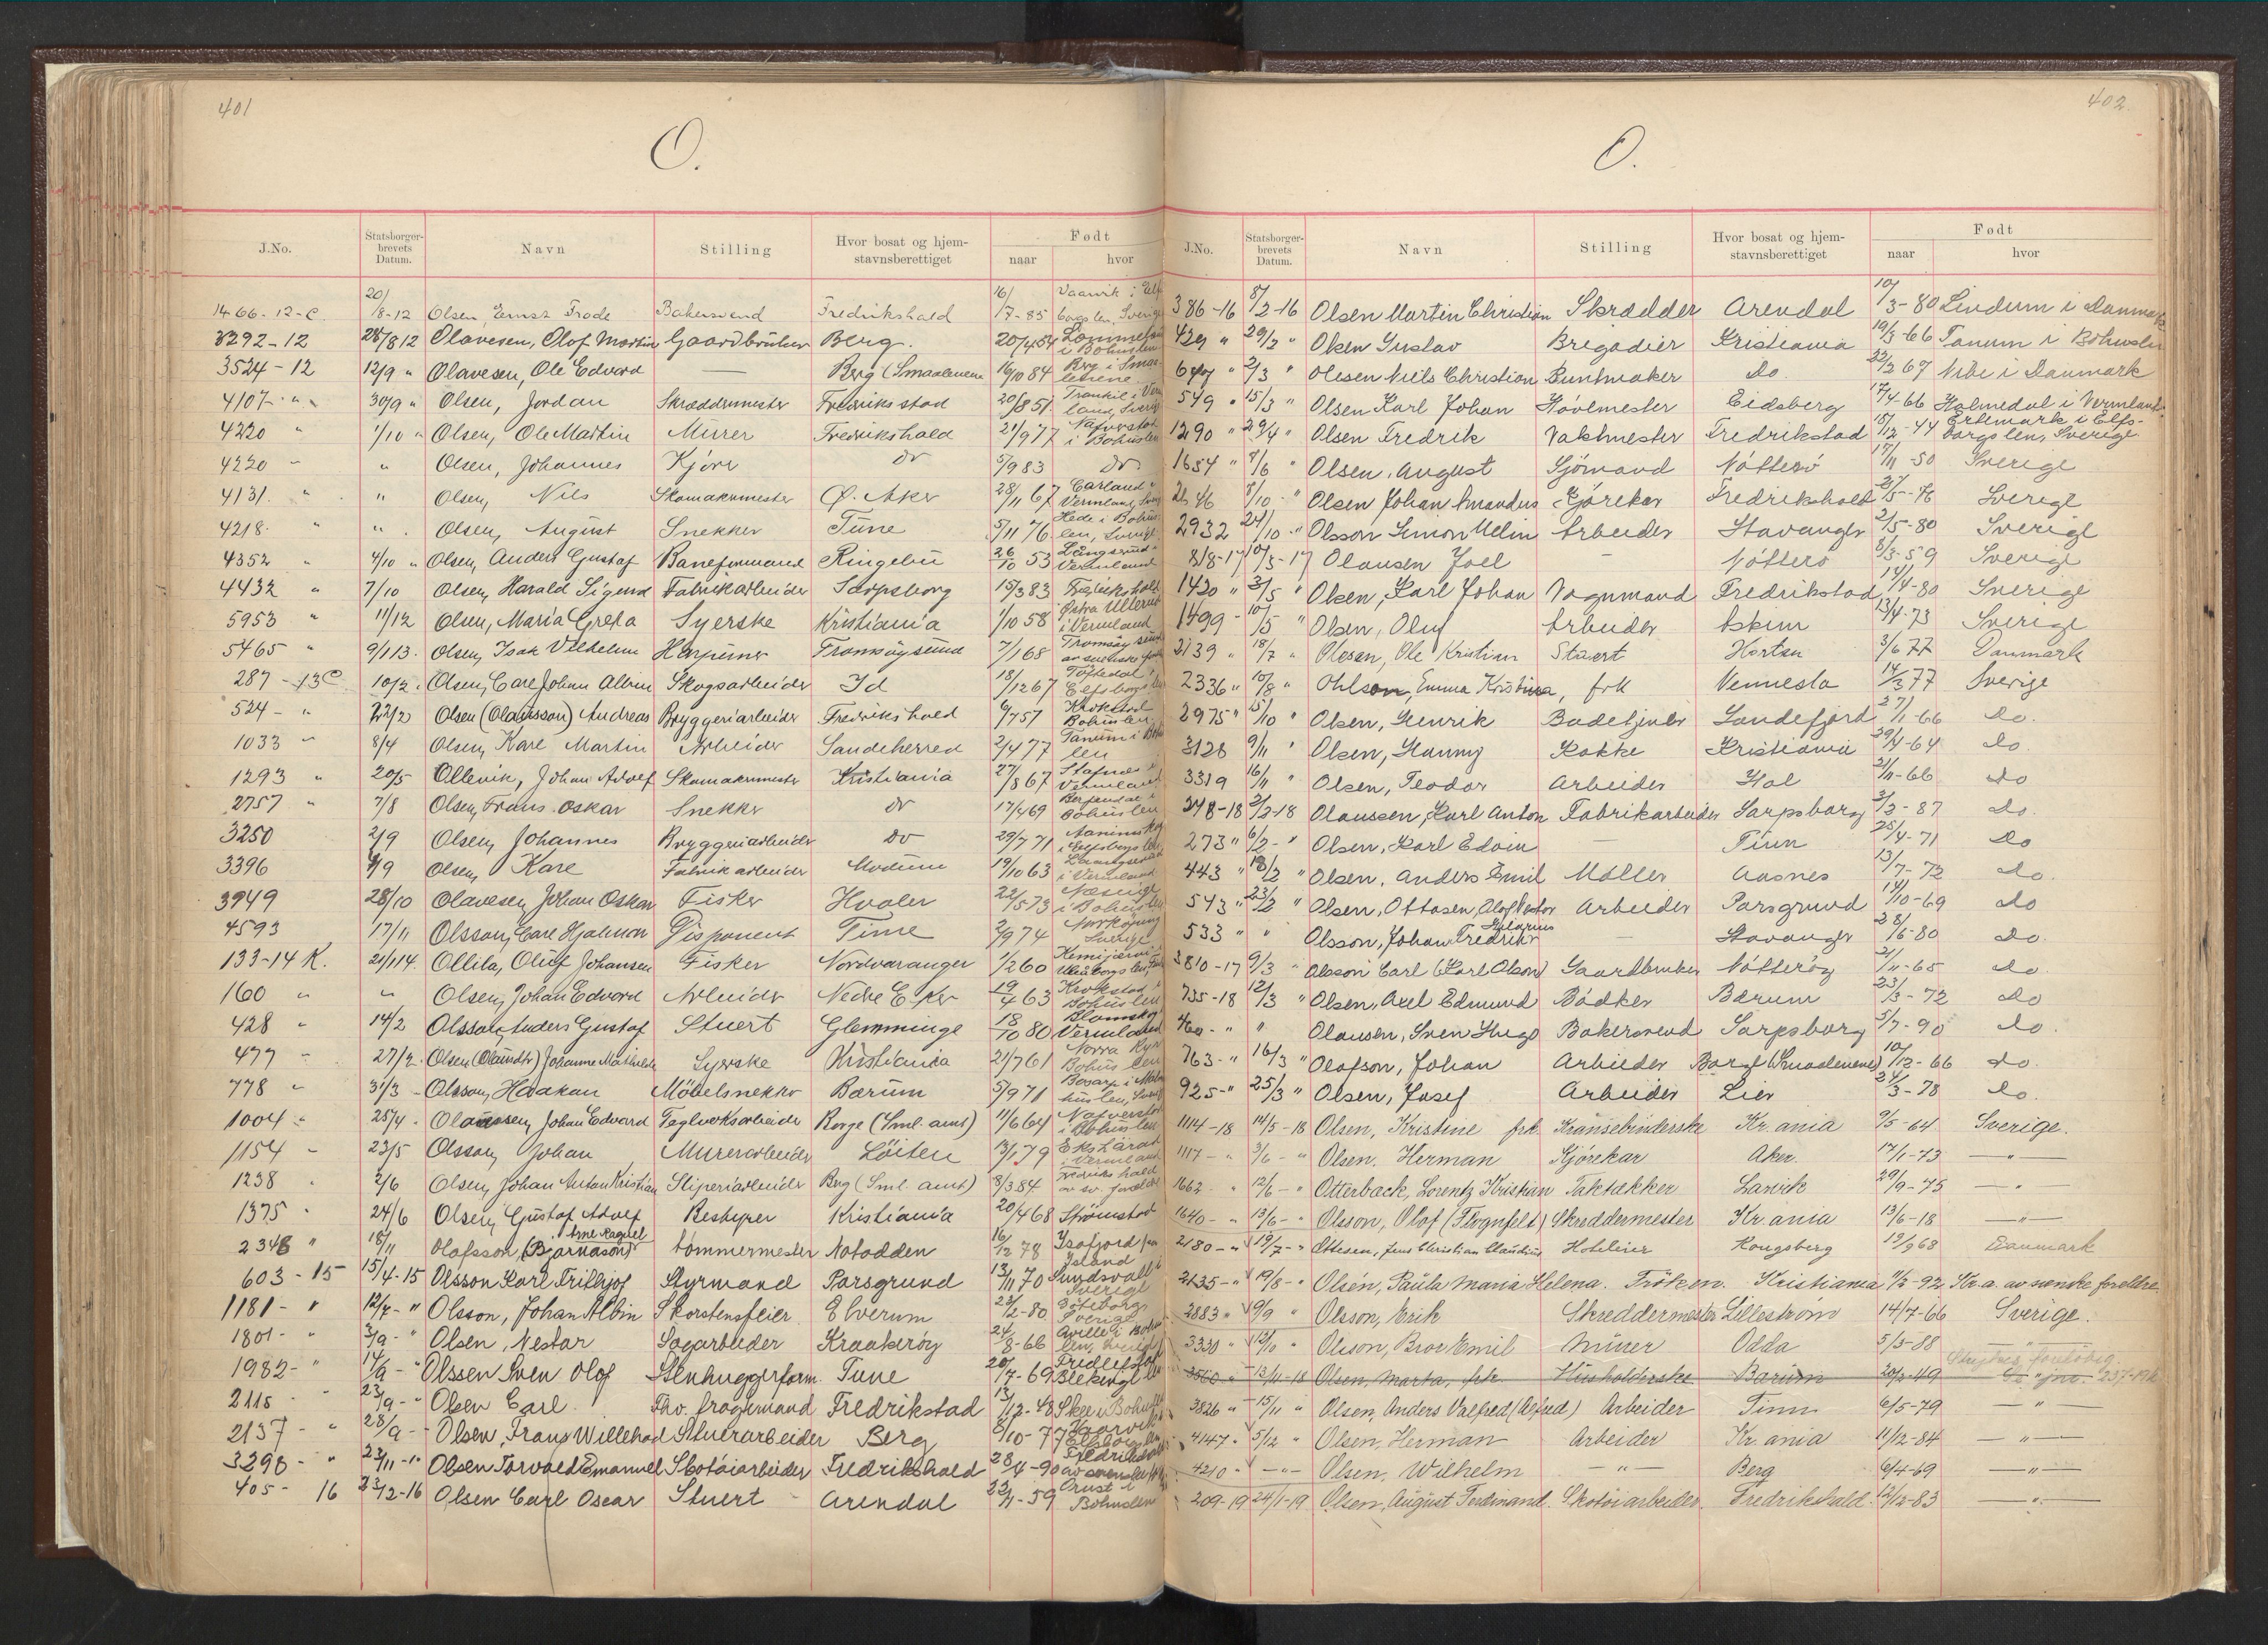 401
O.
J.No. Statsborgerbrevets Datum. Navn Stilling Hvor bosat og hjemstavnsberettiget Født naar hvor
1466-12-C 20/8-12 Olsen, Ernst Frode Bakersvend Fredrikshald 16/7-85
3292-12 28/8 12 Olavesen, Olof Martin Gaardbruker Berg. 20/4 54 i Bohuslen
3524-12 12/9 " Olavesen, Ole Edvard — Berg (Smaalenene 16/10 84 Berg i Smaalenene
4107 " 30/9 " Olsen, Jordan Skræddermester Fredriksstad 20/8 51
4220 " 1/10 " Olsen, Ole Martin Murer Fredrikshald 21/9 77 i Bohuslen
4220 " " Olsen, Johannes Kjører do 5/9 83 do
4131. " " Olsen, Nils Skomakermester Ø. Aker 28/11 67
4218. " " Olsen, August Snekker Tune 5/11 76 Hede i Bohuslen, Sverige
4352 " 4/10 " Olsen, Anders Gustaf Baneformand Ringebu 26/10 53 Vermland
4432 " 7/10 Olsen, Harald Sigurd Fabrikarbeider Sarpsborg 15/3 83 Fredrikshald
5953 " 11/12 Olsen, Maria Greta Syerske Kristiania 1/10 58 Østra Ullerud i Vermland
5465 " 9/1 13. Olsen, Isak Vilhelm Tromsøysund 7/1 68
287-13C 10/2. Olsen, Carl Johan Albin Skogsarbeider Id 18/12 67
524 - " 22/2 Olsen (Olausson) Andreas Bryggeriarbeider Fredrikshald 6/7 57 Krokstad Bohuslen
1033 " 8/4 Olsen, Karl Martin Arbeider Sandeherred 2/4 77 Tanum i Bohuslen
1293 " 20/5 Ollevik, Johan Adolf Skomakermester Kristiania 27/8 67 Vermland
2757 " 7/8 Olsen, Frans Oskar Snekker do 17/4 69 Bohuslen
3250 2/9 Olsen, Johannes Bryggeriarbeider do 29/7 71
3396 9/9 Olsen, Karl Fabrikarbeider Modum 19/10 63 i Vermland
3949 28/10 Olavesen, Johan Oskar Fisker Hvaler 22/5 73 Næsinge i Bohuslen
4593 17/11 Olsson, Carl Hjalmar Disponent Tune 2/9 74 Norköping Sverige
133-14 K. 21/1 14. Ollila, Oluf Johansen Fisker Nordvaranger 1/2 60
160 " " Olsen, Johan Edvard Arbeider Nedre Eker 19/4 63 Krokstad i Bohuslen
428 " 14/2 Olsson, Anders Gustaf Stuert Glemminge 18/10 80 Blomskog Vermland
477 " 27/2. Olsen (Olausdtr) Johanne Mathilde Syerske Kristiania 21/7 61
778 " 31/3 - Olsson, Haakan Möbelsnekker Bærum 5/9 71
1004 " 25/4. Olaussen, Johan Edvard Teglverksarbeider Borge (Sml. amt) 11/6 64 i Bohuslen
1154 " 23/5 Olsson, Johan Murerarbeider Löiten 13/1 79 i Vermland
1238 " 2/6 Olsen, Johan Anton Kristian Sliperiarbeider Berg (Sml. amt) 8/3 84 Fredrikshald av sv. forældre
1375 " 24/6 Olsen, Gustaf Adolf Bestyrer Kristiania 20/4 68 Strömstad
2348 " 18/11 Olafsson, (Bjarnason) Arne Magdal tömmermester Notodden 16/12 78 Isafjord paa Island
603-15 15/4-15 Olsson Karl Frithjof Styrmand Porsgrund 13/11 70 Sundsvall i Sverige
1181 - " 12/7 - " Olsson, Johan Albin Skorstensfeier Elverum 22/2-80 Göteborg Sverige
1801 - " 3/9 - " Olsen, Nestor Sagarbeider Kraakeröy 24/8-66
1982 - " 14/9 - " Olssen Sven Olof Stenhuggerform. Tune 20/7-69 Blekinge len
2115 - " 23/9 - " Olsen Carl. Fredrikstad 13/12-48 Skee i Bohuslen
2137 - " 28/9 - " Olsen, Frans Willehad Stuerarbeider Berg 8/10-77
3290 - " 23/11 - " Olsen Torvald Emanuel Skotöiarbeider Fredrikshald 28/4-90 Fredrikshald
405 - 16 23/2-16 Olsen Carl Oscar Stuert - Arendal 22/1-59 Orust i Bohuslen
402.
O.
J.No. Statsborgerbrevets Datum. Navn Stilling Hvor bosat og hjemstavnsberettiget Født naar hvor
386-16 8/2-16 Olsen Martin Christian Skrædder Arendal 10/3-80 Lindum i Danmark
429 " 29/2 " Olsen Gustav Brigadier Kristiania 19/3-66 Tanum i Bohuslen
2/3 " Olesen Niels Christian Buntmaker do. 22/2 67 Nibe i Danmark
549 " 15/3 " Olsen Karl Johan Høvlmester Eidsberg 17/4-66 Holmedal i Vermland
1290 " 29/4 " Olsen Fredrik Vaktmester Fredrikstad 15/12-44 Ertemark i Elfsborgs len, Sverige
1654 " 8/6 " Olsen, August Sjömand Nötterö 17/11-50 Sverige
8/10 - " Olsen Johan Amandus Kjörekar Fredrikshald Sverige
2932 24/10 - " Olsson Simon Arbeider Stavanger 2/5-80 Sverige
818-17 10/3-17 Olausen Joel - Nötterö 8/3-59 Sverige
1420 " 3/5 " Olsen, Karl Johan Vognmand Fredrikstad 14/4-80 Sverige
1499 - 10/5 " Olsen, Oluf Arbeider Askim 13/4-73 Sverige
2139 " 18/7 " Olesen, Ole Kristian Stuert Horten 3/6 77 Danmark
2336 " 10/8 " Ohlson, Emma Kristina, frk Vennesla 14/3 77 Sverige
2975 " 15/10 " Olsen, Henrik Badetjener Sandefjord 27/1-66 do.
3128 9/11 " Olsen, Hanny Kokke Kristiania 29/4-64 do
3319 16/11 " Olsen, Teodor Arbeider Hol 21/11-66 do
248-18 2/2-18 Olaussen, Karl Anton Fabrikarbeider Sarpsborg 3/2-87 do.
273 " 6/2 - " Olsen, Karl Edvin — Tinn 25/4-71 do
443 " 18/2 " Olsen, Anders Emil Møller Aasnes 13/7-72 do.
543 " 23/2 " Olsen, Ottosen, Olof Nestor Arbeider Porsgrund 14/10-69 do
533 " " Olsson, Johan Fredrik Hilarius — Stavanger 28/6-80 do.
3810-17 9/3 " Olsson Carl (Karl Olson) Gaardbruker Nötteröy 21/11-65 do.
735-18 12/3 " Olsen, Axel Edmund Bödker Bærum 23/3-72 do
" " Olausen, Sven Hugo Bakersvend Sarpsborg 5/7-90 do.
763 - " 16/3 " Olofson, Johan Arbeider Borge (Smaalenene) 10/12-66 do.
925 - " 25/3 " Olsen, Josef Arbeider Lier 24/3-78 do.
1114-18 14/5-18 Olsen, Kristine frk. Kransebinderske Kr.ania 9/5-64 Sverige.
1117 - " 3/6 - " Olsen, Herman Kjörekar Aker. 17/1-73 — " —
1662 - " 12/6 - " Otterbeck, Lorentz Kristian Taktækker Larvik 29/9-75 — " —
1640 - " 13/6 - " Olsson, Olof (Flognfelt) Skreddermester Kr.ania 13/6-18 — " —
2180 - " 19/7 - " Ottesen, Jens Christian Claudius Hoteleier Kongsberg 19/9 68 Danmark
2435 - " 19/8 - " Olsén, Paula Maria Helena. Fröken. Kristiania 11/3-92 Kr.a. av svenske foreldre
2883 " 9/9 " Olsson, Erik Skreddermester Lillestrøm 14/7-66 Sverige.
3330 - " 12/10 " Olsson, Bror Emil Murer Odda 5/3-88 — " —
3560 " 13/11-18 Olsen, Marta, frk. Husholderske Bærum 20/3-49 — " — Strykes foreløbig
3826 " 15/11 " Olsen, Anders Valfred (Alfred) Arbeider Tinn 6/5-79 — " —
4147 " 5/12 " Olsen, Herman Arbeider Kr.ania 11/12-84 — " —
4210 " — " — Olsen, Wilhelm — " — Berg 6/4-69 — " —
209-19 24/1-19 Olsen, August Ferdinand. Skotöiarbeider. Fredrikshald. 12/12-83 — " —